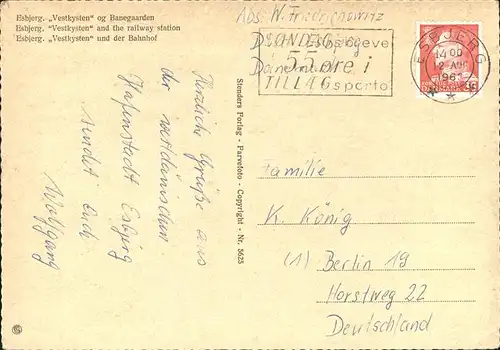 Esbjerg. „Vestkysten" og Banegaarden
Esbjerg. „Vestkysten" and the railway station
Esbjerg. „Vestkysten" und der Bahnhof
Abs. W. Friedrichowitz
Dänemark
SØNDAGSBREVE
55 øre i
TILLÆGSporto
ESBJERG
1400
2 AUG
196
Herzliche Grüße aus
der westdänischen
Hafenstadt Esbjerg
sendet Euch
Wolfgang
Stenders Forlag - Farvefoto - Copyright - Nr. 5625
Familie
K. König
(1) Berlin 19
Horstweg 22
Deutschland